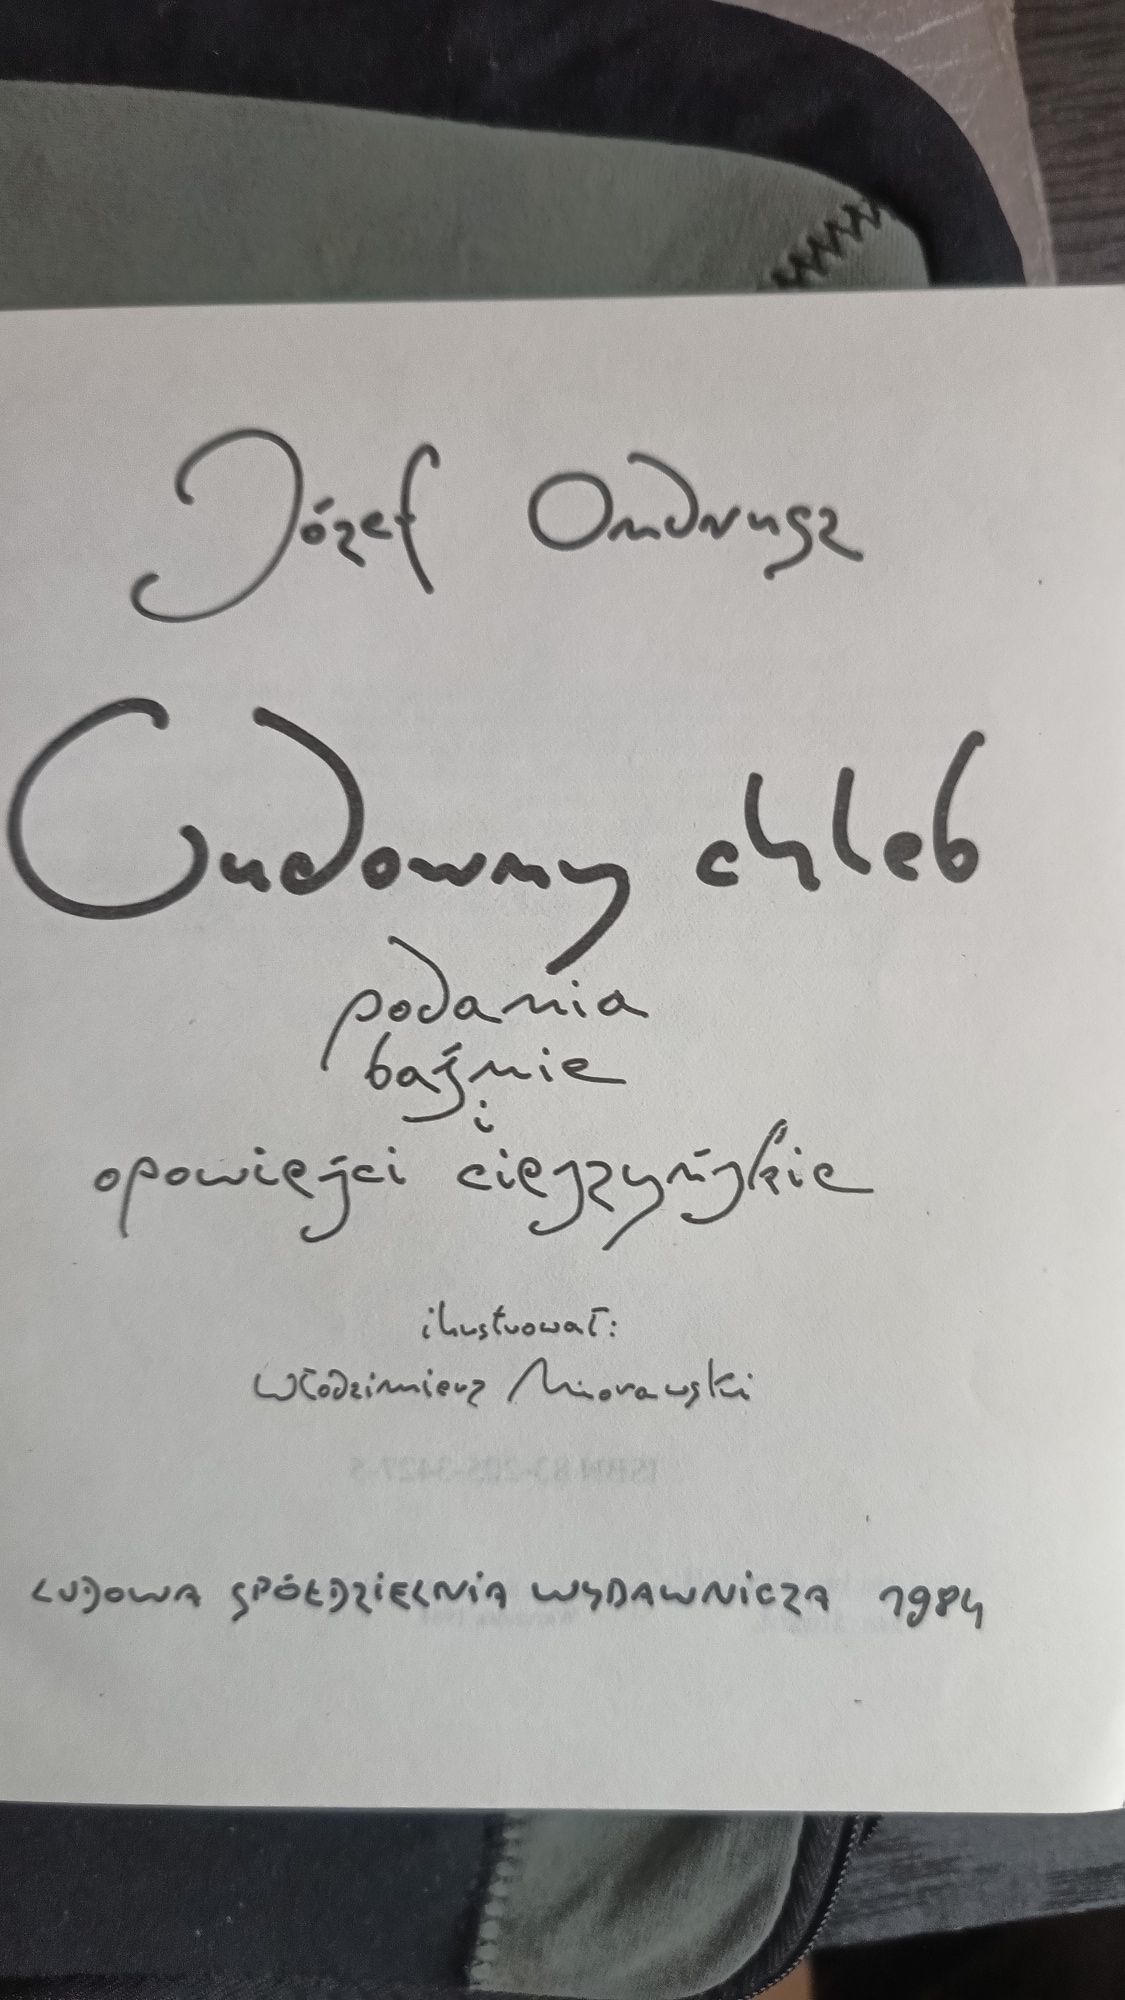 Józef Ondrusz
Cudowny chleb
podania
baśnie
i
opowieści cieszyńskie
ilustrował:
Włodzimierz Miorawski
LUDOWA SPÓŁDZIELNIA WYDAWNICZA 1984
ISBN 83-205-3427-5